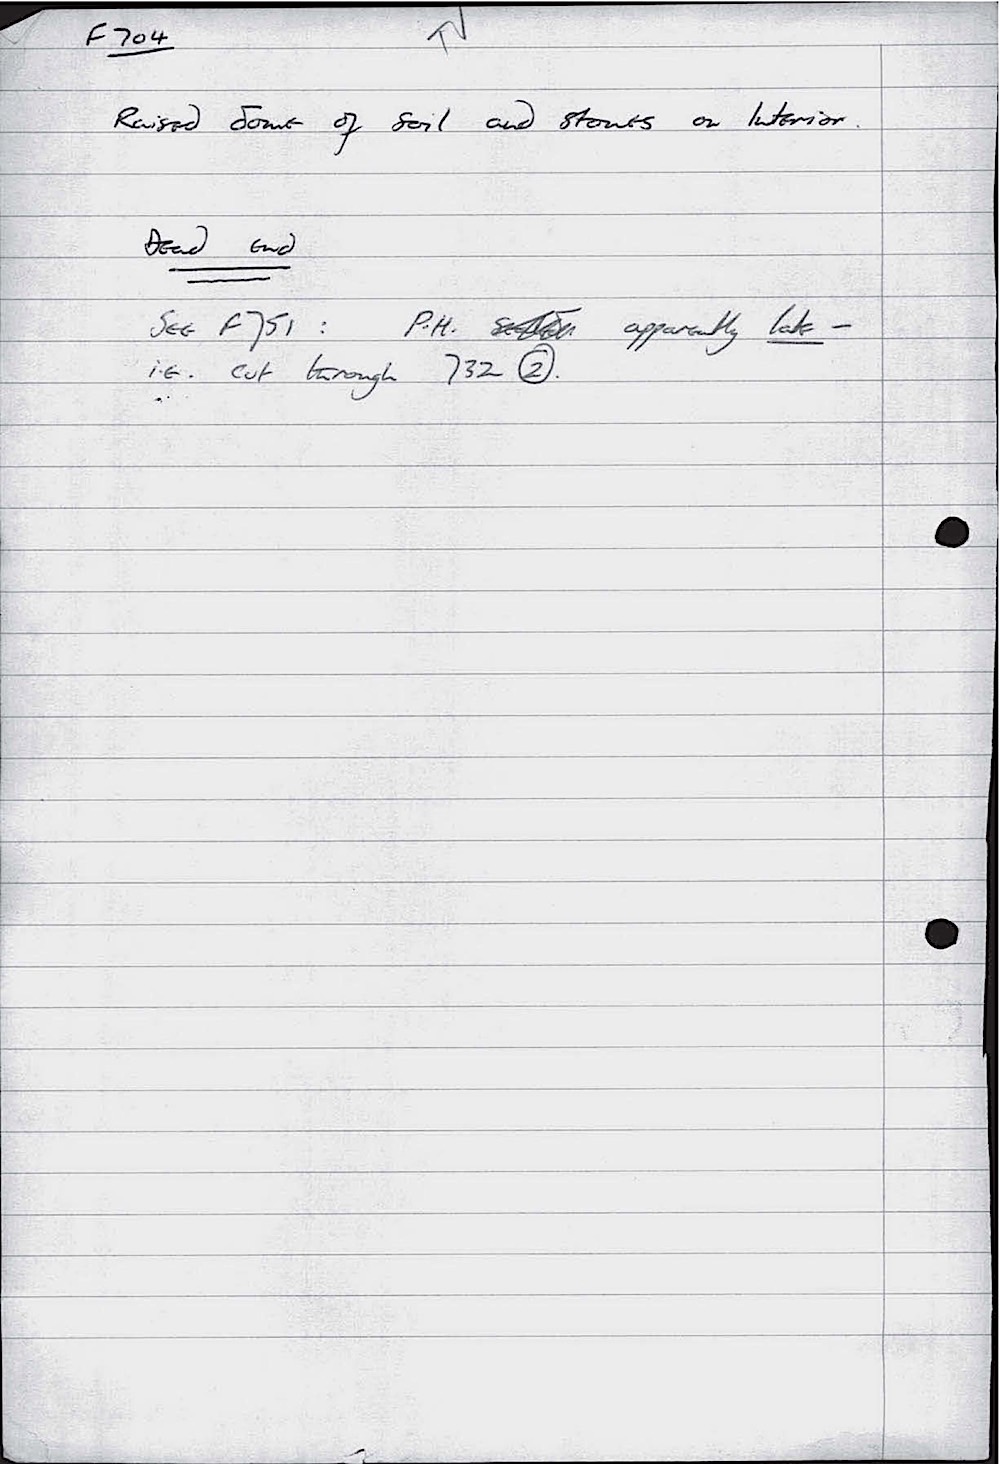 F704 TV
Raised dome of soil and stones on Interior.
Dead end
See F751: P.H. apparently late –
i.e. cut through 732 ②.